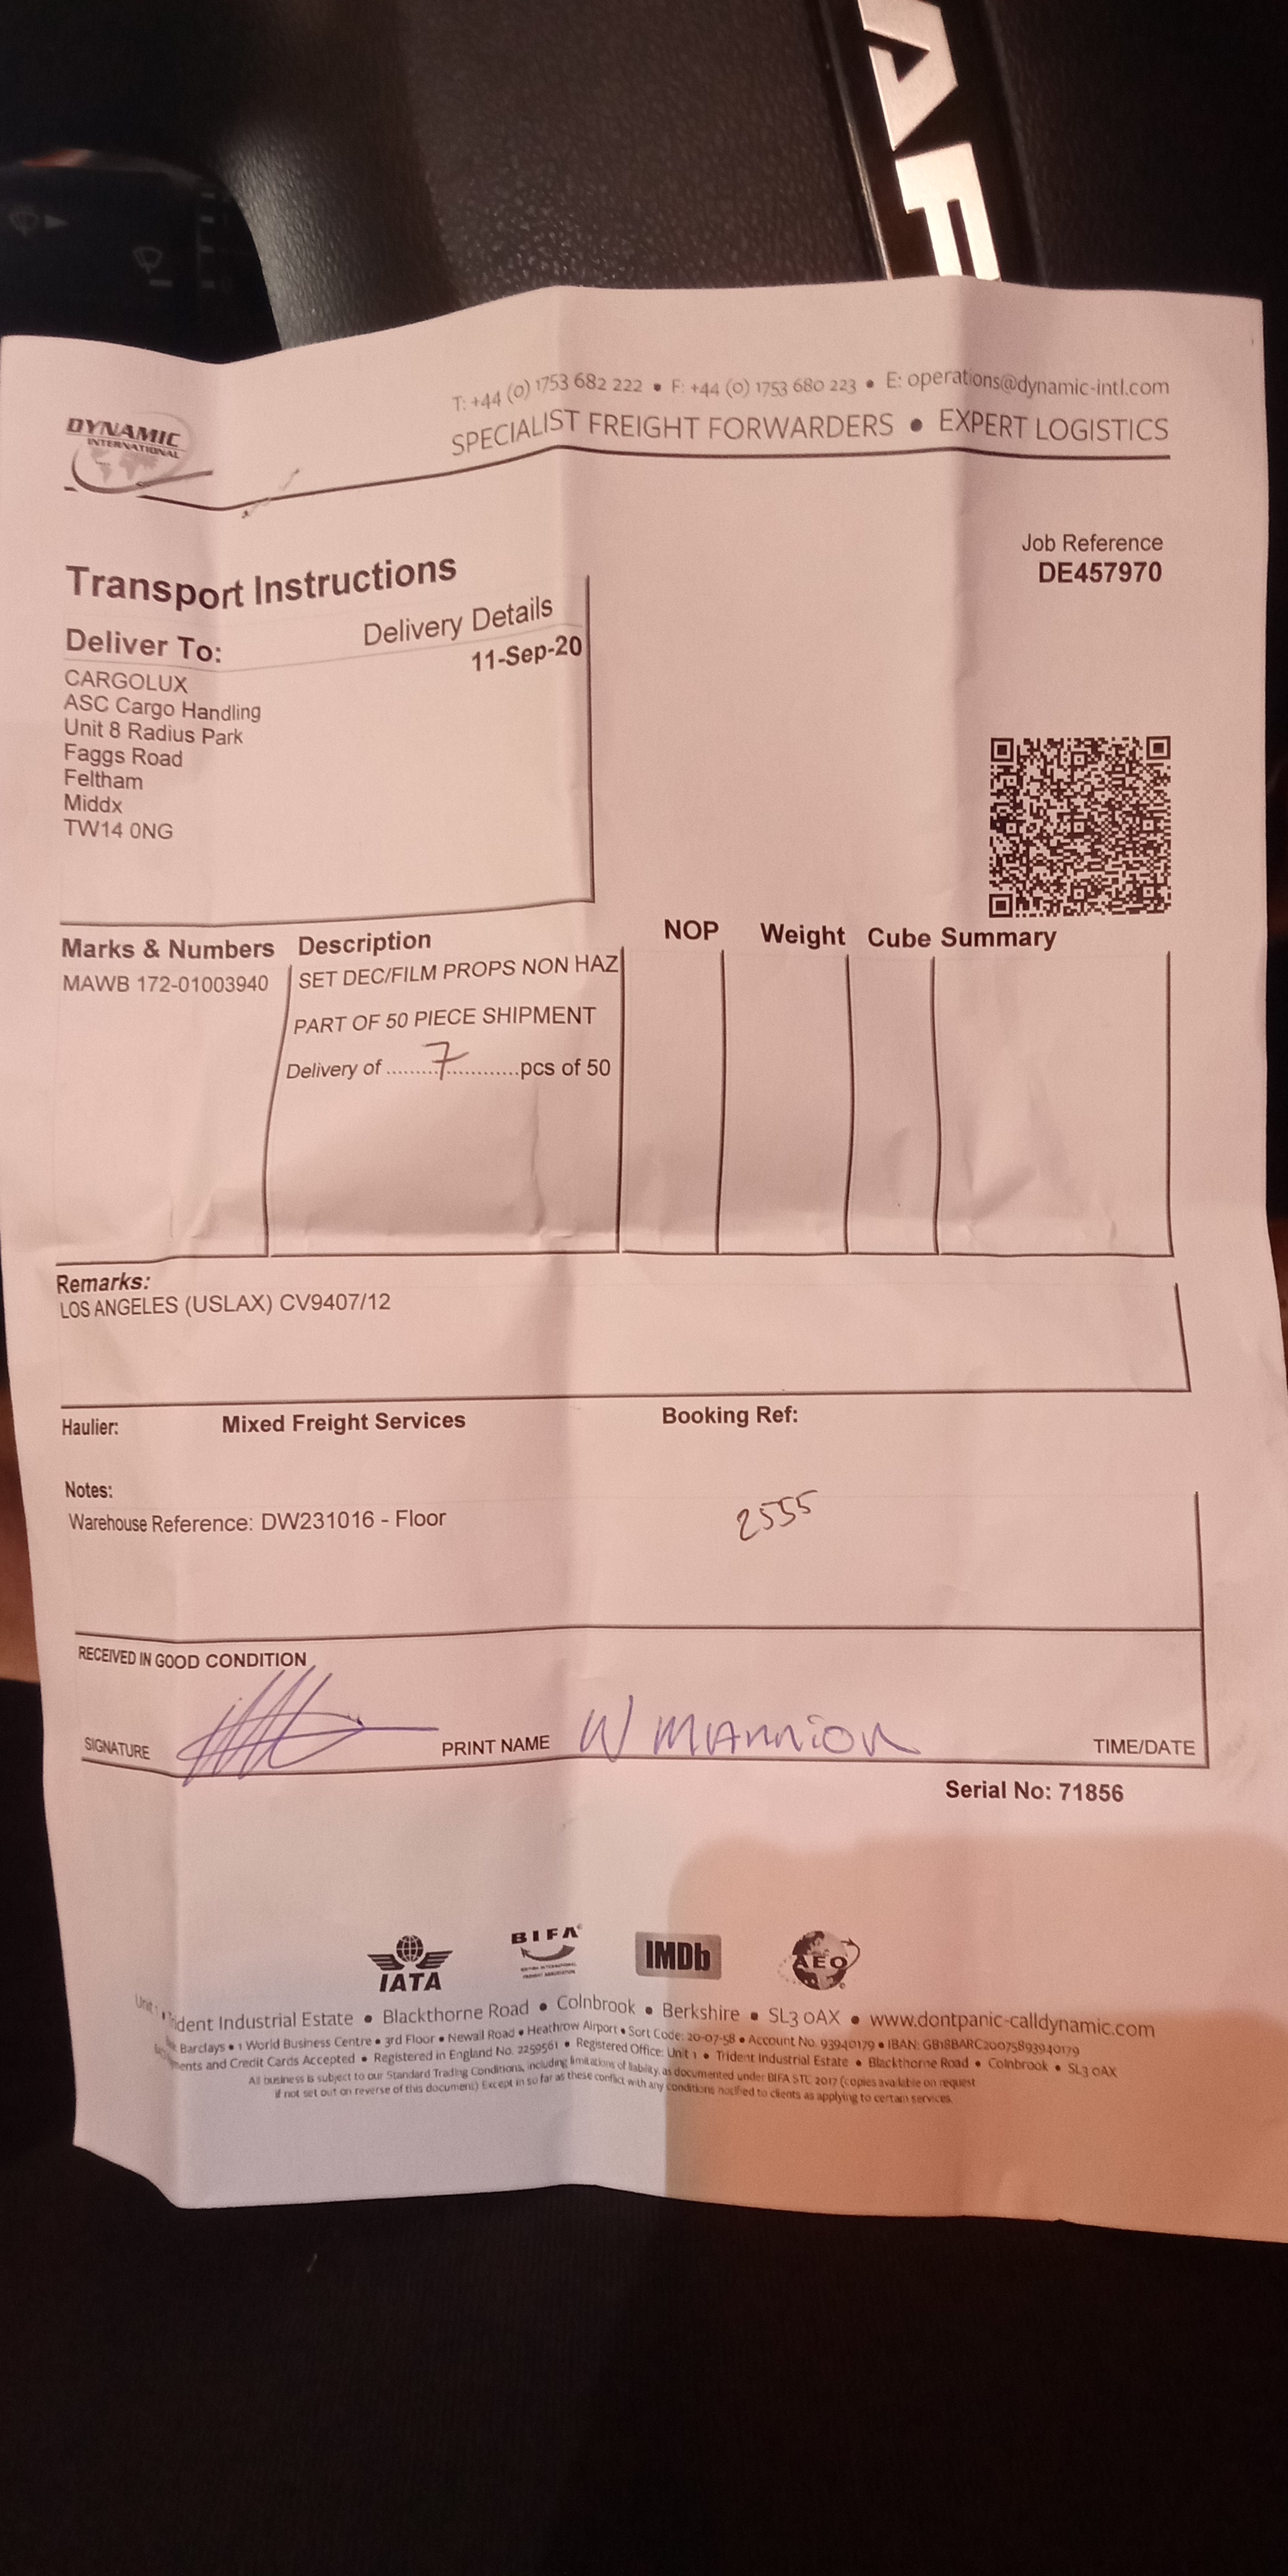 AF
T: +44 (0) 1753 682 222 • F: +44 (0) 1753 680 223 • E: operations@dynamic-intl.com
SPECIALIST FREIGHT FORWARDERS • EXPERT LOGISTICS
DYNAMIC
INTERNATIONAL
Job Reference
DE457970
Transport Instructions
Deliver To: Delivery Details
11-Sep-20
CARGOLUX
ASC Cargo Handling
Unit 8 Radius Park
Faggs Road
Feltham
Middx
TW14 0NG
Marks & Numbers Description NOP Weight Cube Summary
MAWB 172-01003940 SET DEC/FILM PROPS NON HAZ
PART OF 50 PIECE SHIPMENT
Delivery of ........7............pcs of 50
Remarks:
LOS ANGELES (USLAX) CV9407/12
Haulier: Mixed Freight Services Booking Ref:
Notes:
Warehouse Reference: DW231016 - Floor 2555
RECEIVED IN GOOD CONDITION
SIGNATURE PRINT NAME W MANNION TIME/DATE
Serial No: 71856
IATA BIFA IMDb AEO
Unit 1 • Trident Industrial Estate • Blackthorne Road • Colnbrook • Berkshire • SL3 0AX • www.dontpanic-calldynamic.com
Barclays • 1 World Business Centre • 3rd Floor • Newall Road • Heathrow Airport • Sort Code: 20-07-58 • Account No. 93940179 • IBAN: GB18BARC20075893940179
and Credit Cards Accepted • Registered in England No. 2259561 • Registered Office: Unit 1 • Trident Industrial Estate • Blackthorne Road • Colnbrook • SL3 0AX
All business is subject to our Standard Trading Conditions, including limitations of liability, as documented under BIFA STC 2017 (copies available on request
if not set out on reverse of this document) Except in so far as these conflict with any conditions notified to clients as applying to certain services.